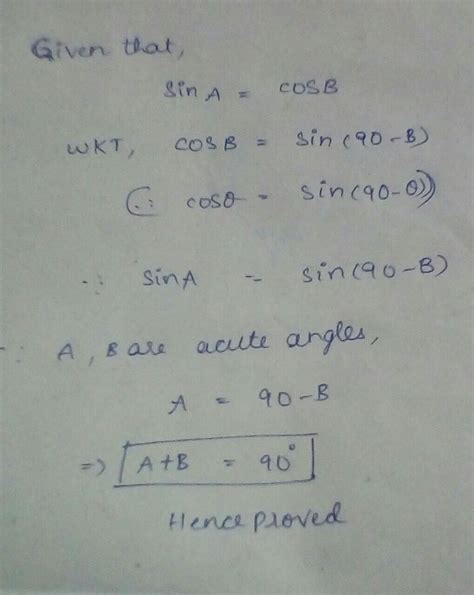 Given that,
sin A = cosB
WKT, cosB = sin(90-B)
(∵ cosθ = sin(90-θ))
∴ sinA = sin(90-B)
∵ A, B are acute angles,
A = 90-B
=> A+B = 90°
Hence proved